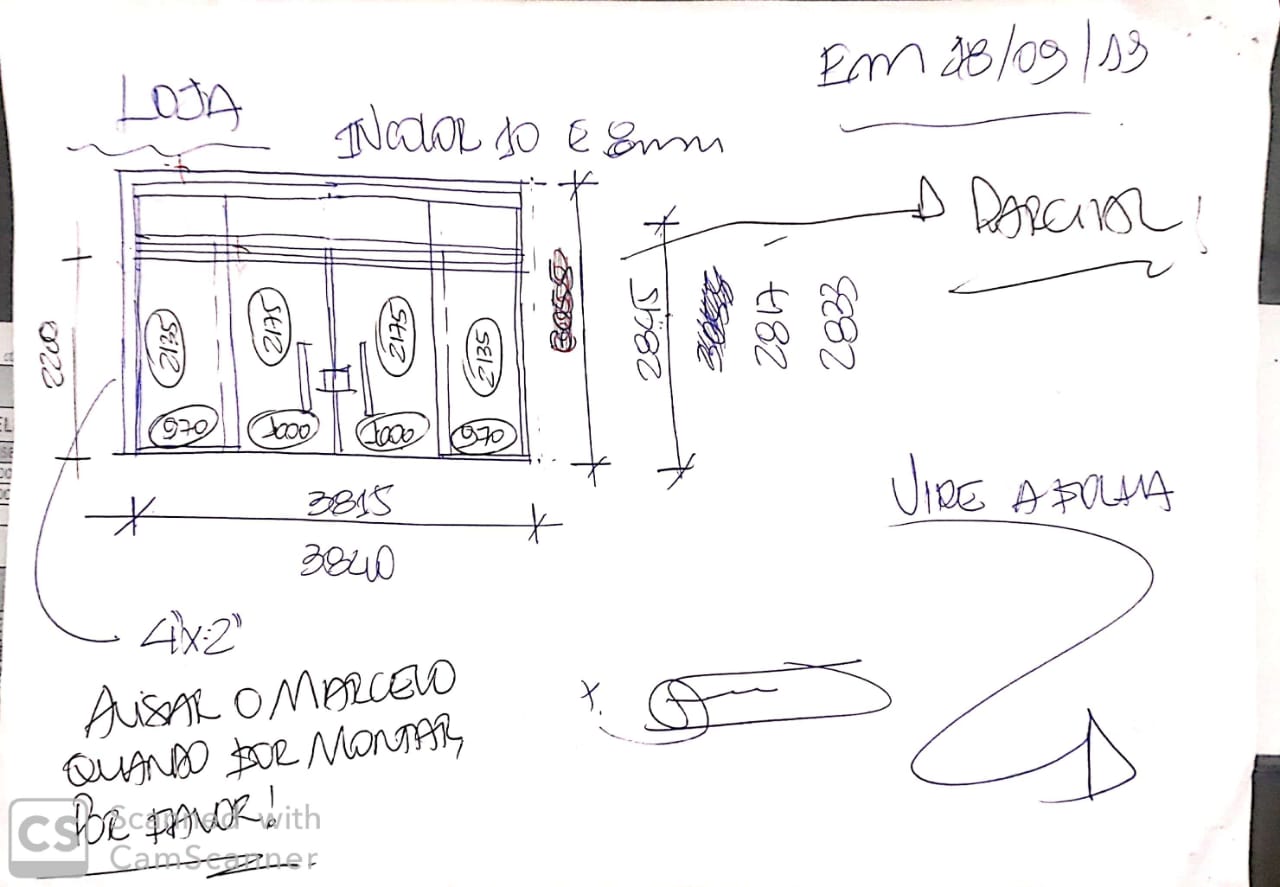 Em 18/09/19
LOJA
INCOLOR 10 E 8mm
PARCIAL!
2200
2135
2175
2175
2135
970
1000
1000
970
2845
2817
2833
3815
3840
VIRE A FOLHA
4"x2"
AVISAR O MARCELO
QUANDO FOR MONTAR,
POR FAVOR!
x.
CS Scanned with
CamScanner